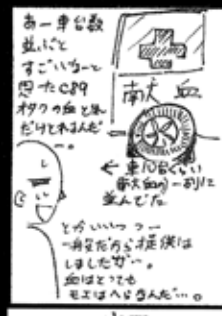 あー車台数
並ぶと
すごいなーと
思ったC89
オタクの血と〜
だけとれるんだ
〜。
献血
← 車10台くらい
献血の一列に
並んでた
とかいいつつ
一般だから提供は
しましたが〜。
血はとっても
モエはへらないんだ…。